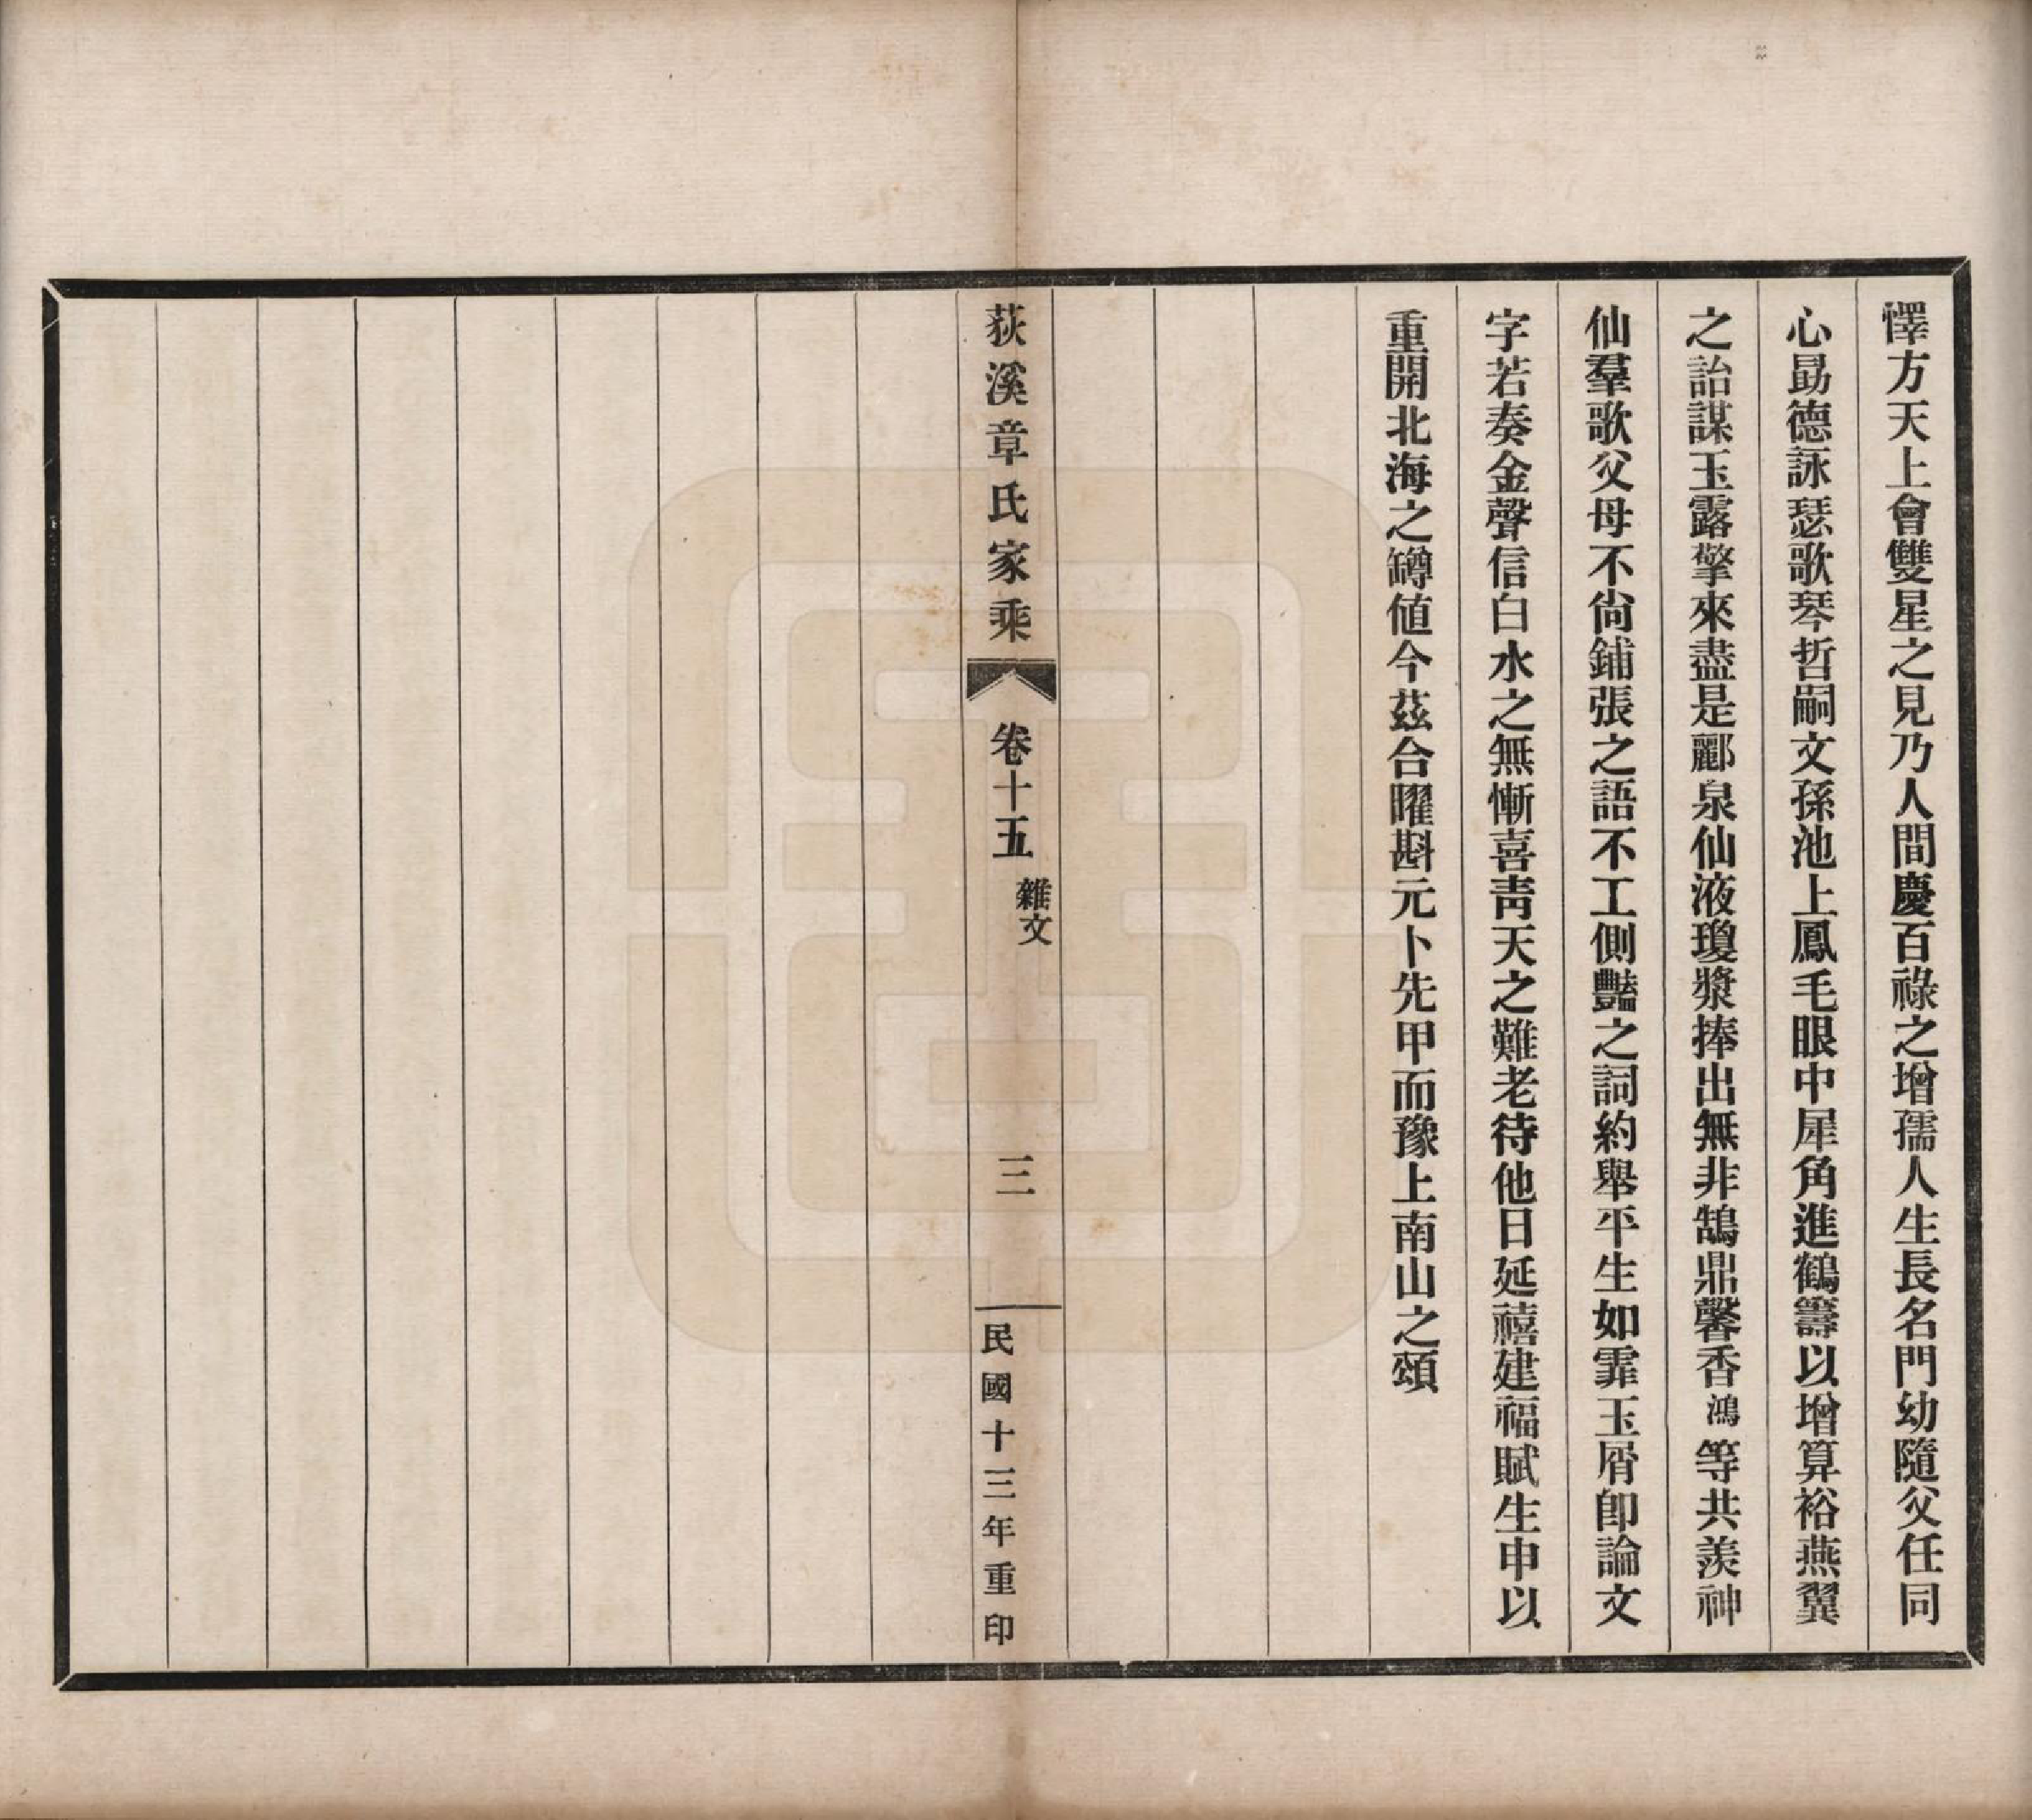 懌方天上會雙星之見乃人間慶百祿之增孺人生長名門幼隨父任同
心勗德詠瑟歌琴哲嗣文孫池上鳳毛眼中犀角進鶴籌以增算裕燕翼
之詒謀玉露擎來盡是酈泉仙液瓊漿捧出無非鵠鼎馨香鴻等共羨神
仙羣歌父母不尙鋪張之語不工側豔之詞約舉平生如霏玉屑卽論文
字若奏金聲信白水之無慚喜靑天之難老待他日延禧建福賦生申以
重開北海之罇値今茲合曜斟元卜先甲而豫上南山之頌
荻溪章氏家乘 卷十五 雜文 三 民國十三年重印